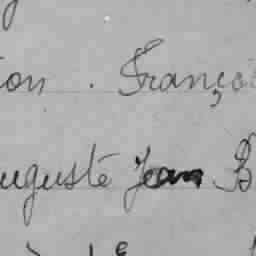 ion. Franço
uguste Jean B